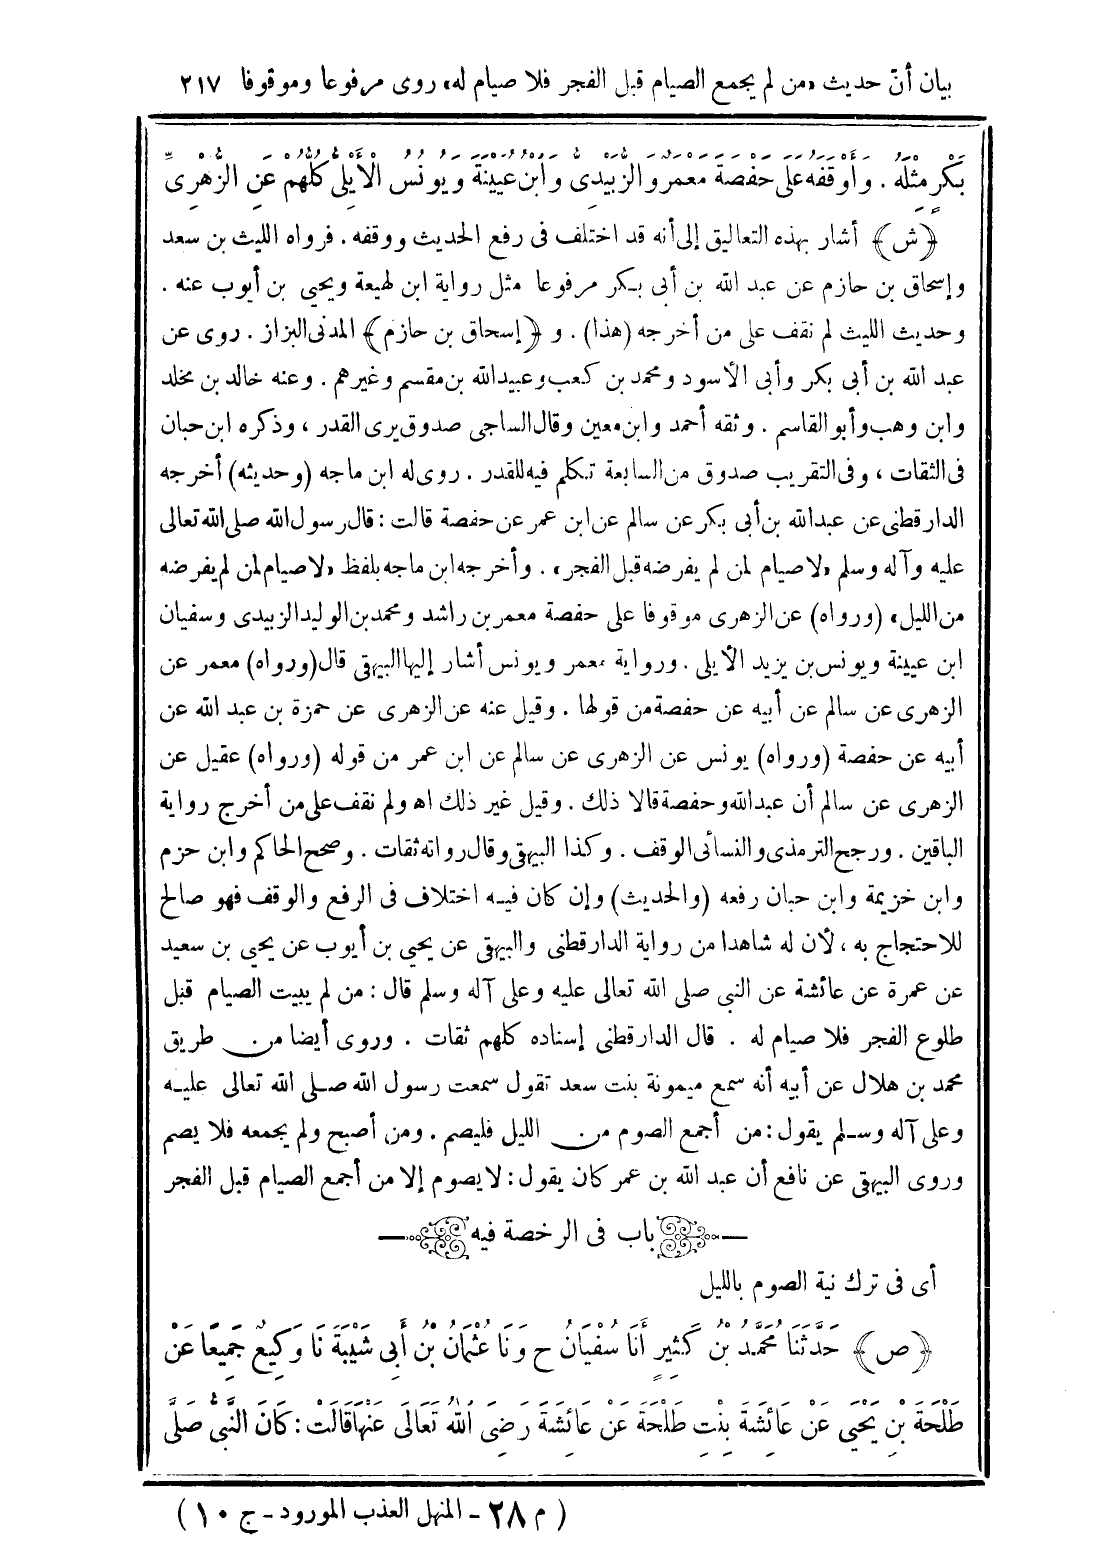 بيان أنّ حديث «من لم يجمع الصيام قبل الفجر فلا صيام له» روى مرفوعا وموقوفا ٢١٧
بَكْرٍ مِثْلَهُ . وَأَوْقَفَهُ عَلَى حَفْصَةَ مَعْمَرٌ وَالزُّبَيْدِىُّ وَابْنُ عُيَيْنَةَ وَيُونُسُ الْأَيْلِىُّ كُلُّهُمْ عَنِ الزُّهْرِىِّ
﴿ش﴾ أشار بهذه التعاليق إلى أنه قد اختلف فى رفع الحديث ووقفه . فرواه الليث بن سعد
وإسحاق بن حازم عن عبد الله بن أبى بكر مرفوعا مثل رواية ابن لهيعة ويحيى بن أيوب عنه .
وحديث الليث لم نقف على من أخرجه (هذا) . و ﴿إسحاق بن حازم﴾ المدنى البزاز . روى عن
عبد الله بن أبى بكر وأبى الأسود ومحمد بن كعب وعبيد الله بن مقسم وغيرهم . وعنه خالد بن مخلد
وابن وهب وأبو القاسم . وثقه أحمد وابن معين وقال الساجى صدوق يرى القدر ، وذكره ابن حبان
فى الثقات ، وفى التقريب صدوق من السابعة تكلم فيه للقدر . روى له ابن ماجه (وحديثه) أخرجه
الدارقطنى عن عبد الله بن أبى بكر عن سالم عن ابن عمر عن حفصة قالت : قال رسول الله صلى الله تعالى
عليه وآله وسلم «لا صيام لمن لم يفرضه قبل الفجر» . وأخرجه ابن ماجه بلفظ «لا صيام لمن لم يفرضه
من الليل» (ورواه) عن الزهرى موقوفا على حفصة معمر بن راشد ومحمد بن الوليد الزبيدى وسفيان
ابن عيينة ويونس بن يزيد الأيلى . ورواية معمر ويونس أشار إليها البيهقى قال (ورواه) معمر عن
الزهرى عن سالم عن أبيه عن حفصة من قولها . وقيل عنه عن الزهرى عن حمزة بن عبد الله عن
أبيه عن حفصة (ورواه) يونس عن الزهرى عن سالم عن ابن عمر من قوله (ورواه) عقيل عن
الزهرى عن سالم أن عبد الله وحفصة قالا ذلك . وقيل غير ذلك اه ولم نقف على من أخرج رواية
الباقين . ورجح الترمذى والنسائى الوقف . وكذا البيهقى وقال رواته ثقات . وصحح الحاكم وابن حزم
وابن خزيمة وابن حبان رفعه (والحديث) وإن كان فيه اختلاف فى الرفع والوقف فهو صالح
للاحتجاج به ، لأن له شاهدا من رواية الدارقطنى والبيهقى عن يحيى بن أيوب عن يحيى بن سعيد
عن عمرة عن عائشة عن النبى صلى الله تعالى عليه وعلى آله وسلم قال : من لم يبيت الصيام قبل
طلوع الفجر فلا صيام له . قال الدارقطنى إسناده كلهم ثقات . وروى أيضا من طريق
محمد بن هلال عن أبيه أنه سمع ميمونة بنت سعد تقول سمعت رسول الله صلى الله تعالى عليه
وعلى آله وسلم يقول : من أجمع الصوم من الليل فليصم . ومن أصبح ولم يجمعه فلا يصم
وروى البيهقى عن نافع أن عبد الله بن عمر كان يقول : لا يصوم إلا من أجمع الصيام قبل الفجر
باب فى الرخصة فيه
أى فى ترك نية الصوم بالليل
﴿ص﴾ حَدَّثَنَا مُحَمَّدُ بْنُ كَثِيرٍ أَنَا سُفْيَانُ ح وَنَا عُثْمَانُ بْنُ أَبِى شَيْبَةَ نَا وَكِيعٌ جَمِيعًا عَنْ
طَلْحَةَ بْنِ يَحْيَى عَنْ عَائِشَةَ بِنْتِ طَلْحَةَ عَنْ عَائِشَةَ رَضِىَ اللهُ تَعَالَى عَنْهَا قَالَتْ : كَانَ النَّبِىُّ صَلَّى
( م ٢٨ - المنهل العذب المورود - ج ١٠ )